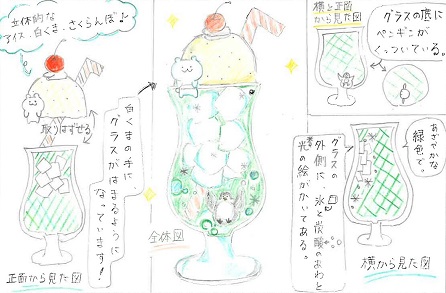 立体的な
アイス・白くま・さくらんぼ♪
取りはずせる
正面から見た図
白くまの手に、
グラスがはまるように
なっています!
全体図
横と正面
から見た図
グラスの底に
ペンギンが
くっついている。
あざやかな
緑色で。
グラスの
外側に、氷と炭酸のあわと
光の絵がかいてある。
横から見た図